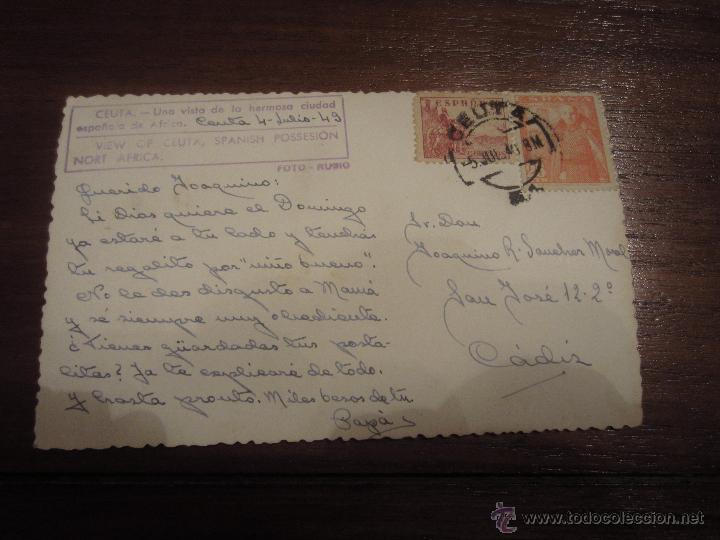 CEUTA. — Una vista de la hermosa ciudad
española de Africa. Ceuta 4-Julio-49
VIEW OF CEUTA, SPANISH POSSESION
NORT AFRICA.
FOTO - RUBIO
ESPAÑA
CEUTA
5 JUL 49 8M
Querido Joaquino:
Si Dios quiere el Domingo
ya estaré a tu lado y tendrás
tu regalito por "niño bueno".
No le des disgusto a Mamá
y sé siempre muy obediente.
¿Tienes güardadas tus posta-
litas? Ya te explicaré de todo.
Y hasta pronto. Miles besos de tu
Papá
Sr. Don
Joaquino R. Sanchez
San José 12-2º
Cádiz
todocoleccion
www.todocoleccion.net